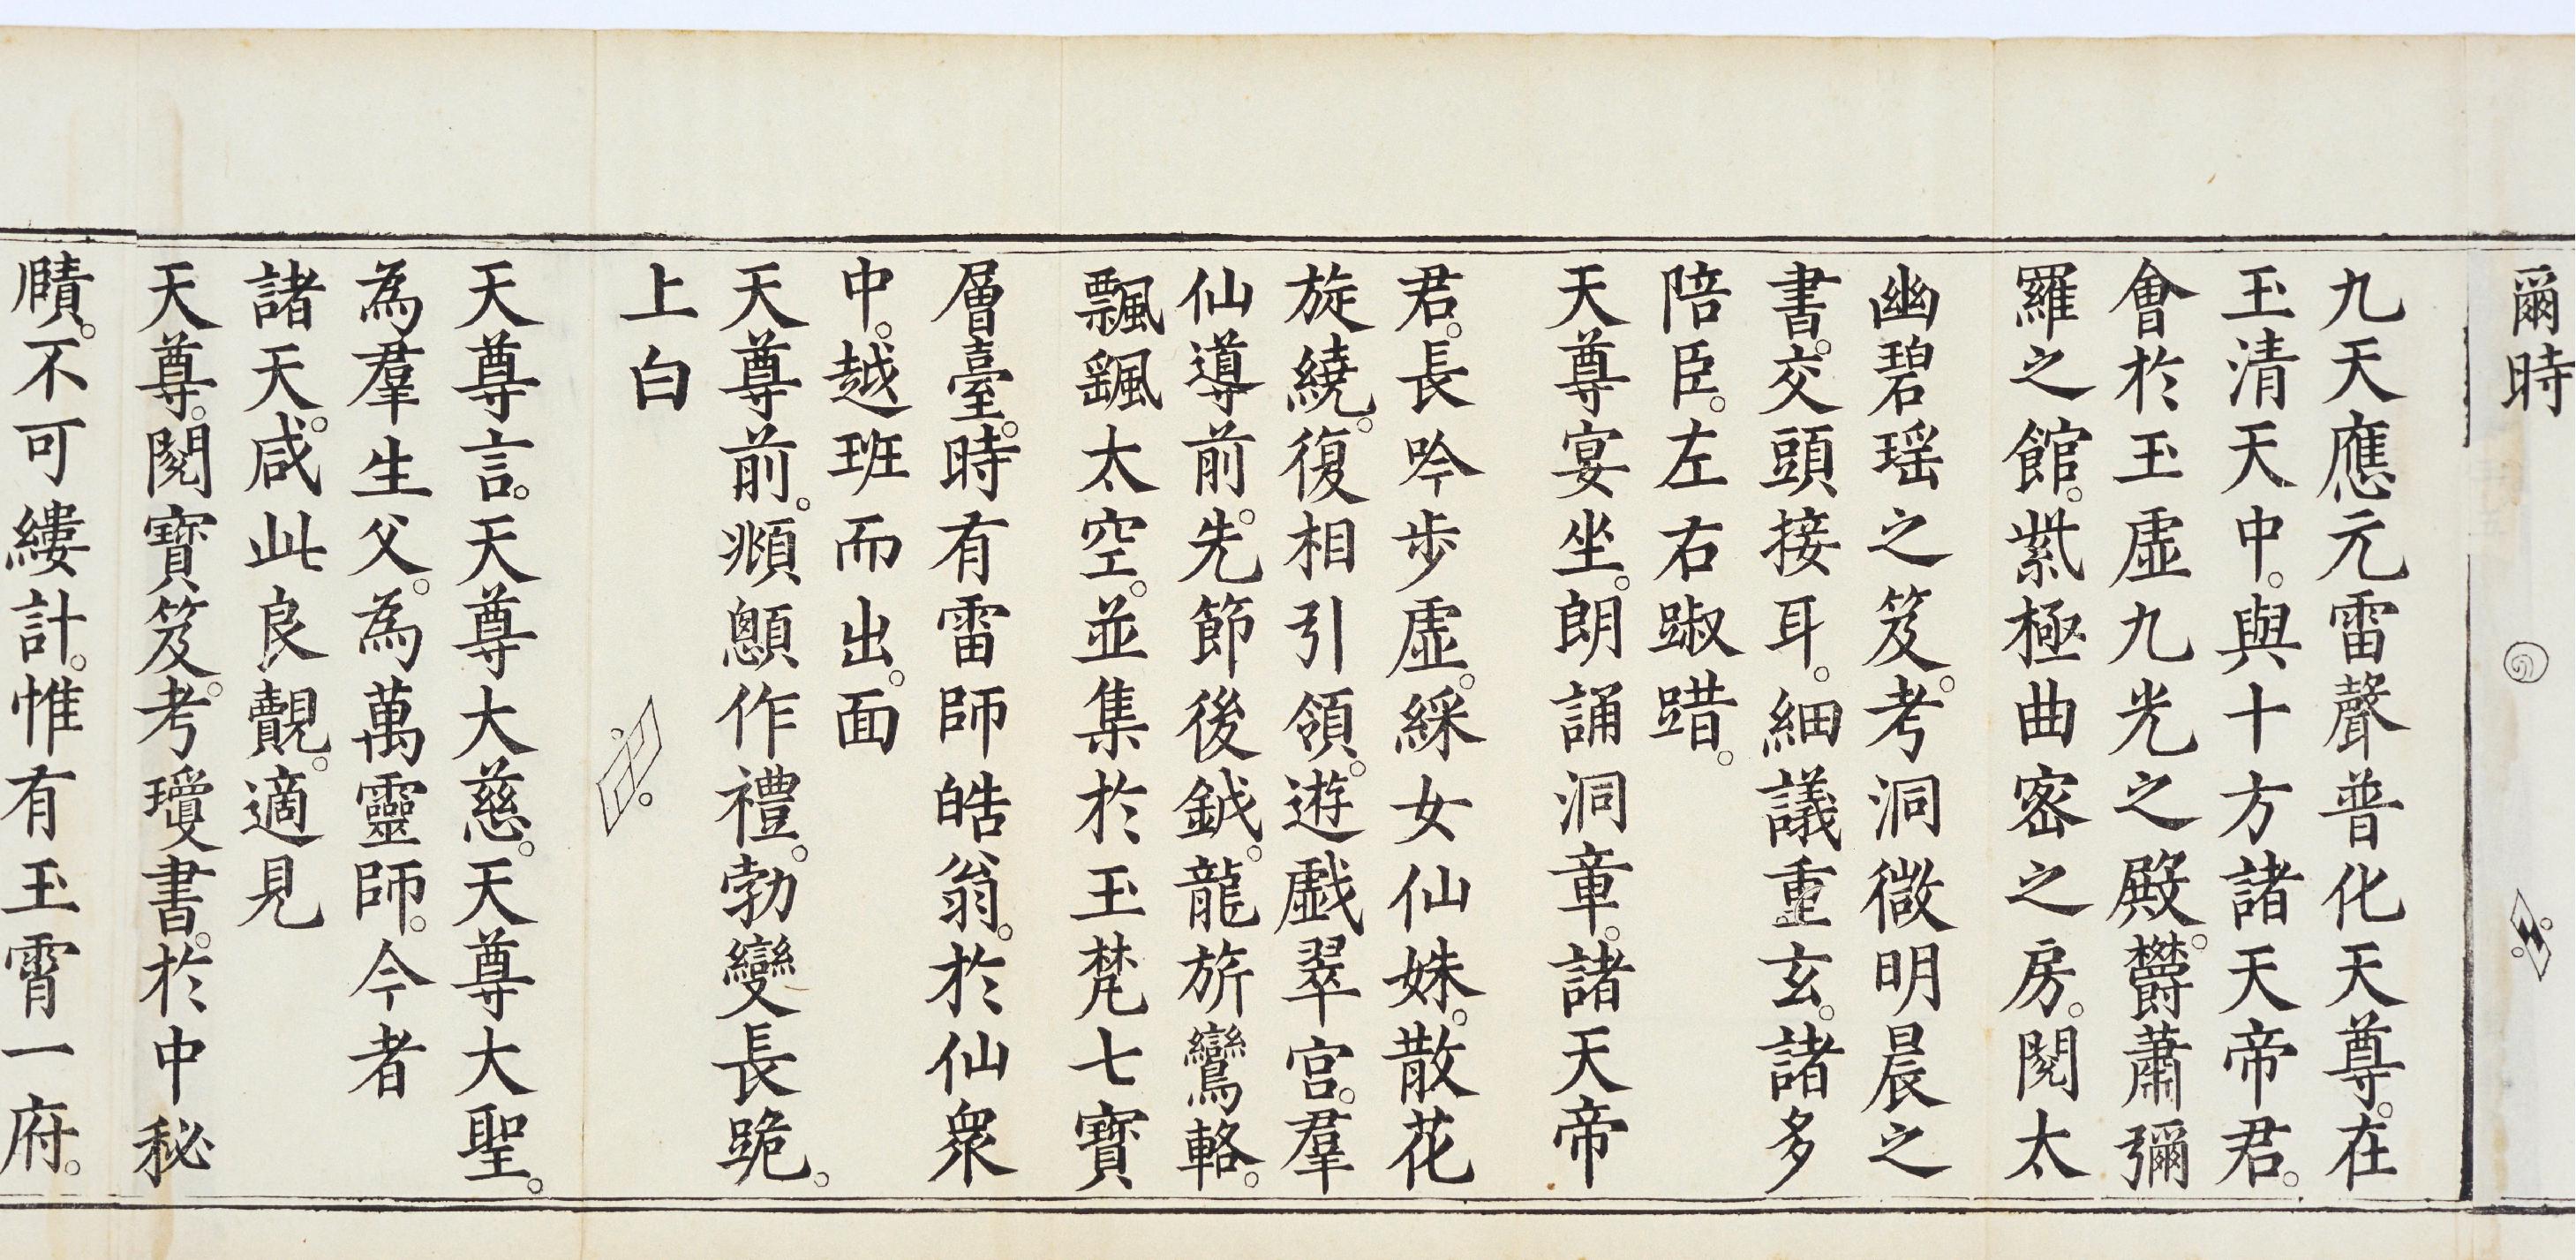 爾時
九天應元雷聲普化天尊。在
玉清天中。與十方諸天帝君。
會於玉虛九光之殿。鬱蕭彌
羅之館。紫極曲密之房。閱太
幽碧瑶之笈。考洞微明晨之
書。交頭接耳。細議重玄。諸多
陪臣。左右踧踖。
天尊宴坐。朗誦洞章。諸天帝
君。長吟步虛。綵女仙姝。散花
旋繞。復相引領。遊戲翠宮。羣
仙導前。先節後鉞。龍旂鸞輅。
飄飆太空。並集於玉梵七寶
層臺。時有雷師皓翁。於仙衆
中。越班而出。面
天尊前。頫顖作禮。勃變長跪。
上白
天尊言。天尊大慈。天尊大聖。
為羣生父。為萬靈師。今者
諸天。咸此良覿。適見
天尊。閱寶笈。考瓊書。於中秘
賾。不可縷計。惟有玉霄一府。